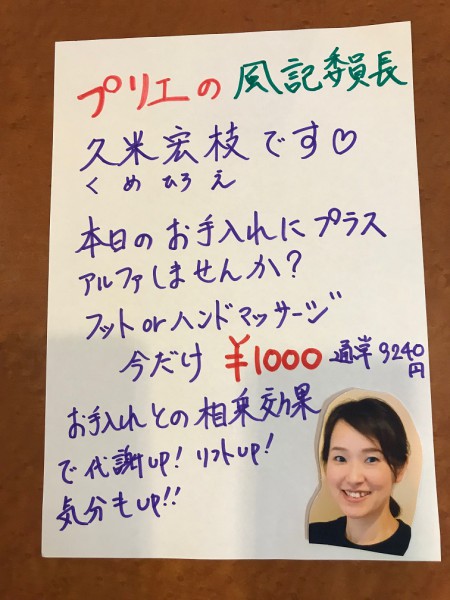 プリエの 風記委員長
久米宏枝です♡
くめひろえ
本日のお手入れにプラス
アルファしませんか?
フットorハンドマッサージ
今だけ ¥1000 通常9240円
お手入れとの相乗効果
で代謝up! リフトup!
気分もup!!